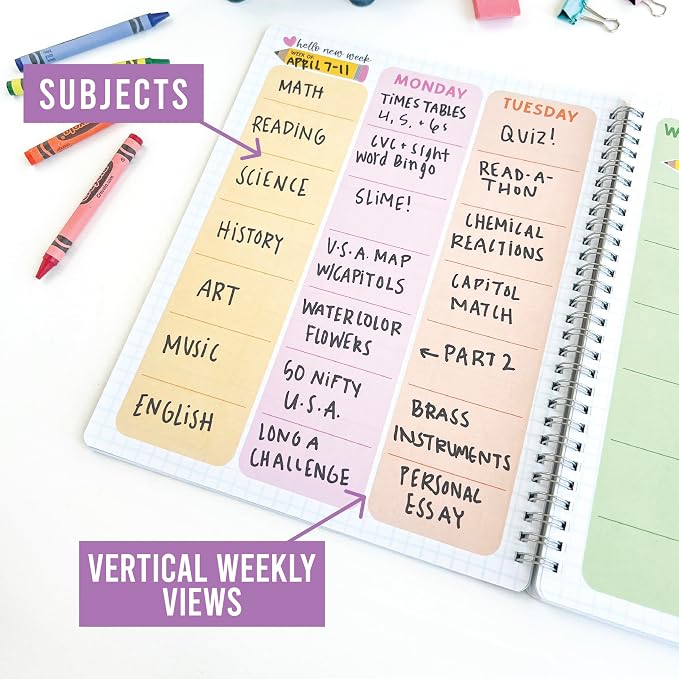 hello new week
WEEK OF:
APRIL 7-11
SUBJECTS
MATH
READING
SCIENCE
HISTORY
ART
MUSIC
ENGLISH
MONDAY
TIMES TABLES
4, 5, + 6s
CVC + SIGHT
WORD BINGO
SLIME!
U.S.A. MAP
W/CAPITOLS
WATERCOLOR
FLOWERS
50 NIFTY
U.S.A.
LONG A
CHALLENGE
TUESDAY
QUIZ!
READ-A-
THON
CHEMICAL
REACTIONS
CAPITOL
MATCH
← PART 2
BRASS
INSTRUMENTS
PERSONAL
ESSAY
W
VERTICAL WEEKLY
VIEWS